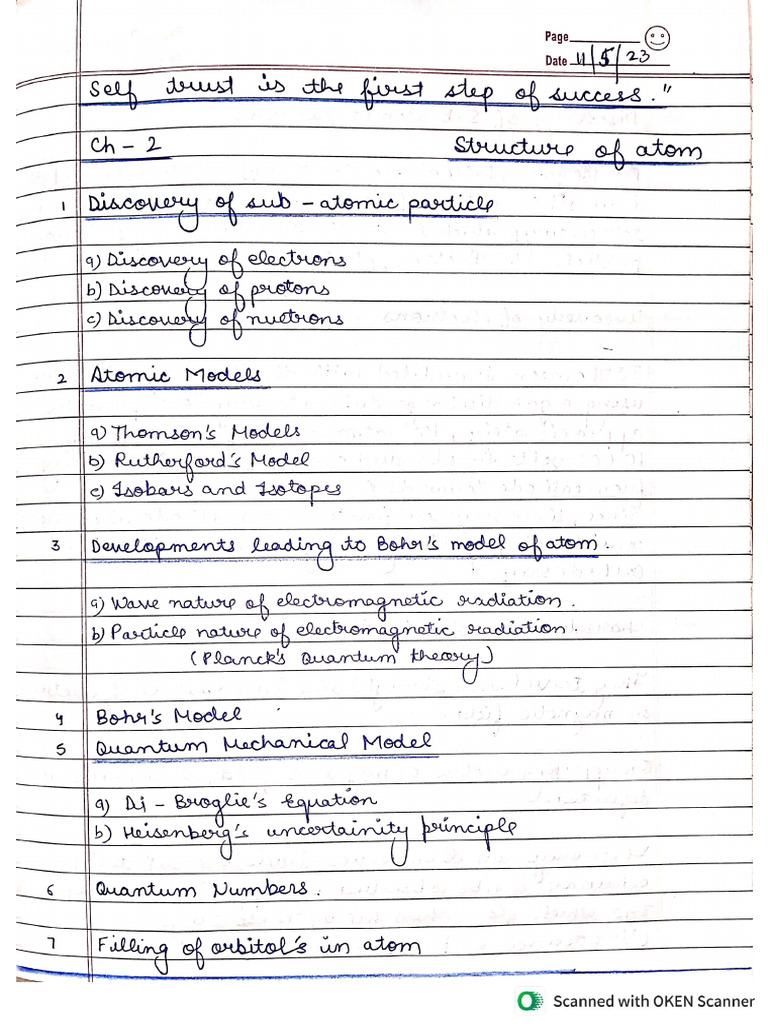 Page
Date 11/5/23
Self trust is the first step of success."
Ch - 2 Structure of atom
1 Discovery of sub - atomic particle
a) Discovery of electrons
b) Discovery of protons
c) Discovery of nuetrons
2 Atomic Models
a) Thomson's Models
b) Rutherford's Model
c) Isobars and Isotopes
3 Developments leading to Bohr's model of atom.
a) Wave nature of electromagnetic radiation.
b) Particle nature of electromagnetic radiation.
(Planck's Quantum theory)
4 Bohr's Model
5 Quantum Mechanical Model
a) Di - Broglie's Equation
b) Heisenberg's uncertainity principle
6 Quantum Numbers.
7 Filling of orbitol's in atom
Scanned with OKEN Scanner